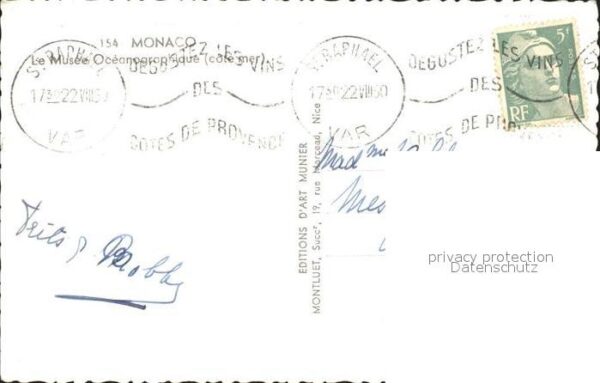 154 MONACO
Le Musée Océanographique (côté mer)
ST RAPHAEL
17 30 22 VIII 50
VAR
DEGUSTEZ LES VINS
DES
COTES DE PROVENCE
ST RAPHAEL
17 30 22 VIII 50
VAR
DEGUSTEZ LES VINS
DES
COTES DE PRO
5F
RF
EDITIONS D'ART MUNIER
MONTLUET, Succr, 19, rue Marceau, Nice
Madame
Mes
Frits & Bobby
privacy protection
Datenschutz